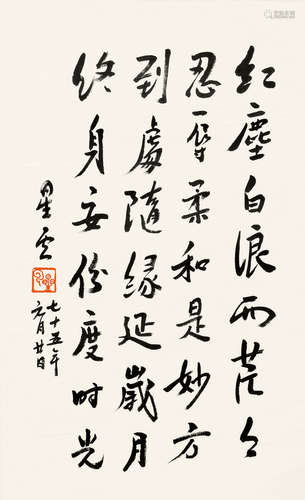 紅塵白浪兩茫々
忍辱柔和是妙方
到處隨緣延歲月
終身安份度时光
星雲
七十五年
元月廿日